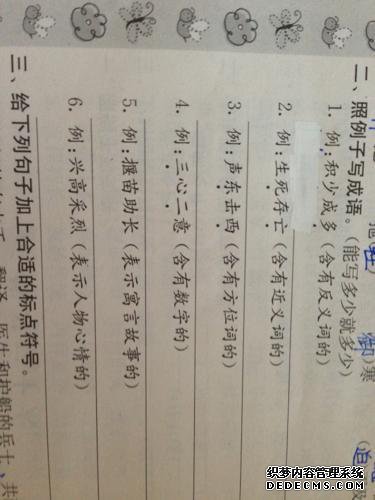 二、照例子写成语。(能写多少就多少)
1. 例:积少成多(含有反义词的)
2. 例:生死存亡(含有近义词的)
3. 例:声东击西(含有方位词的)
4. 例:三心二意(含有数字的)
5. 例:揠苗助长(表示寓言故事的)
6. 例:兴高采烈(表示人物心情的)
三、给下列句子加上合适的标点符号。
翻译、医生和护船的兵士、共
织梦内容管理系统
DEDECMS.COM